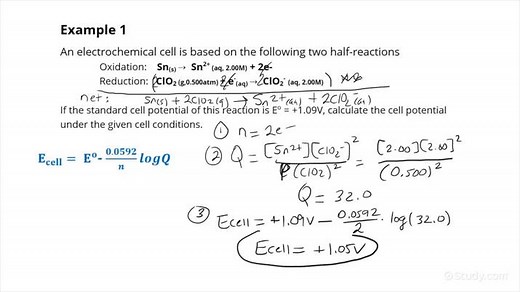 Example 1
An electrochemical cell is based on the following two half-reactions
Oxidation: Sn(s) → Sn²⁺ (aq, 2.00M) + 2e⁻
Reduction: 2(ClO₂ (g,0.500atm) + e⁻(aq) → ClO₂⁻ (aq, 2.00M)) x2
net: Sn(s) + 2ClO2(g) → Sn²⁺(aq) + 2ClO₂⁻(aq)
If the standard cell potential of this reaction is E° = +1.09V, calculate the cell potential
under the given cell conditions.
① n = 2e⁻
E_cell = E° - 0.0592/n logQ
② Q = [Sn²⁺][ClO₂⁻]²/P(ClO₂)² = [2.00][2.00]²/(0.500)²
Q = 32.0
③ Ecell = +1.09V - 0.0592/2 · log(32.0)
Ecell = +1.05V
Study.com